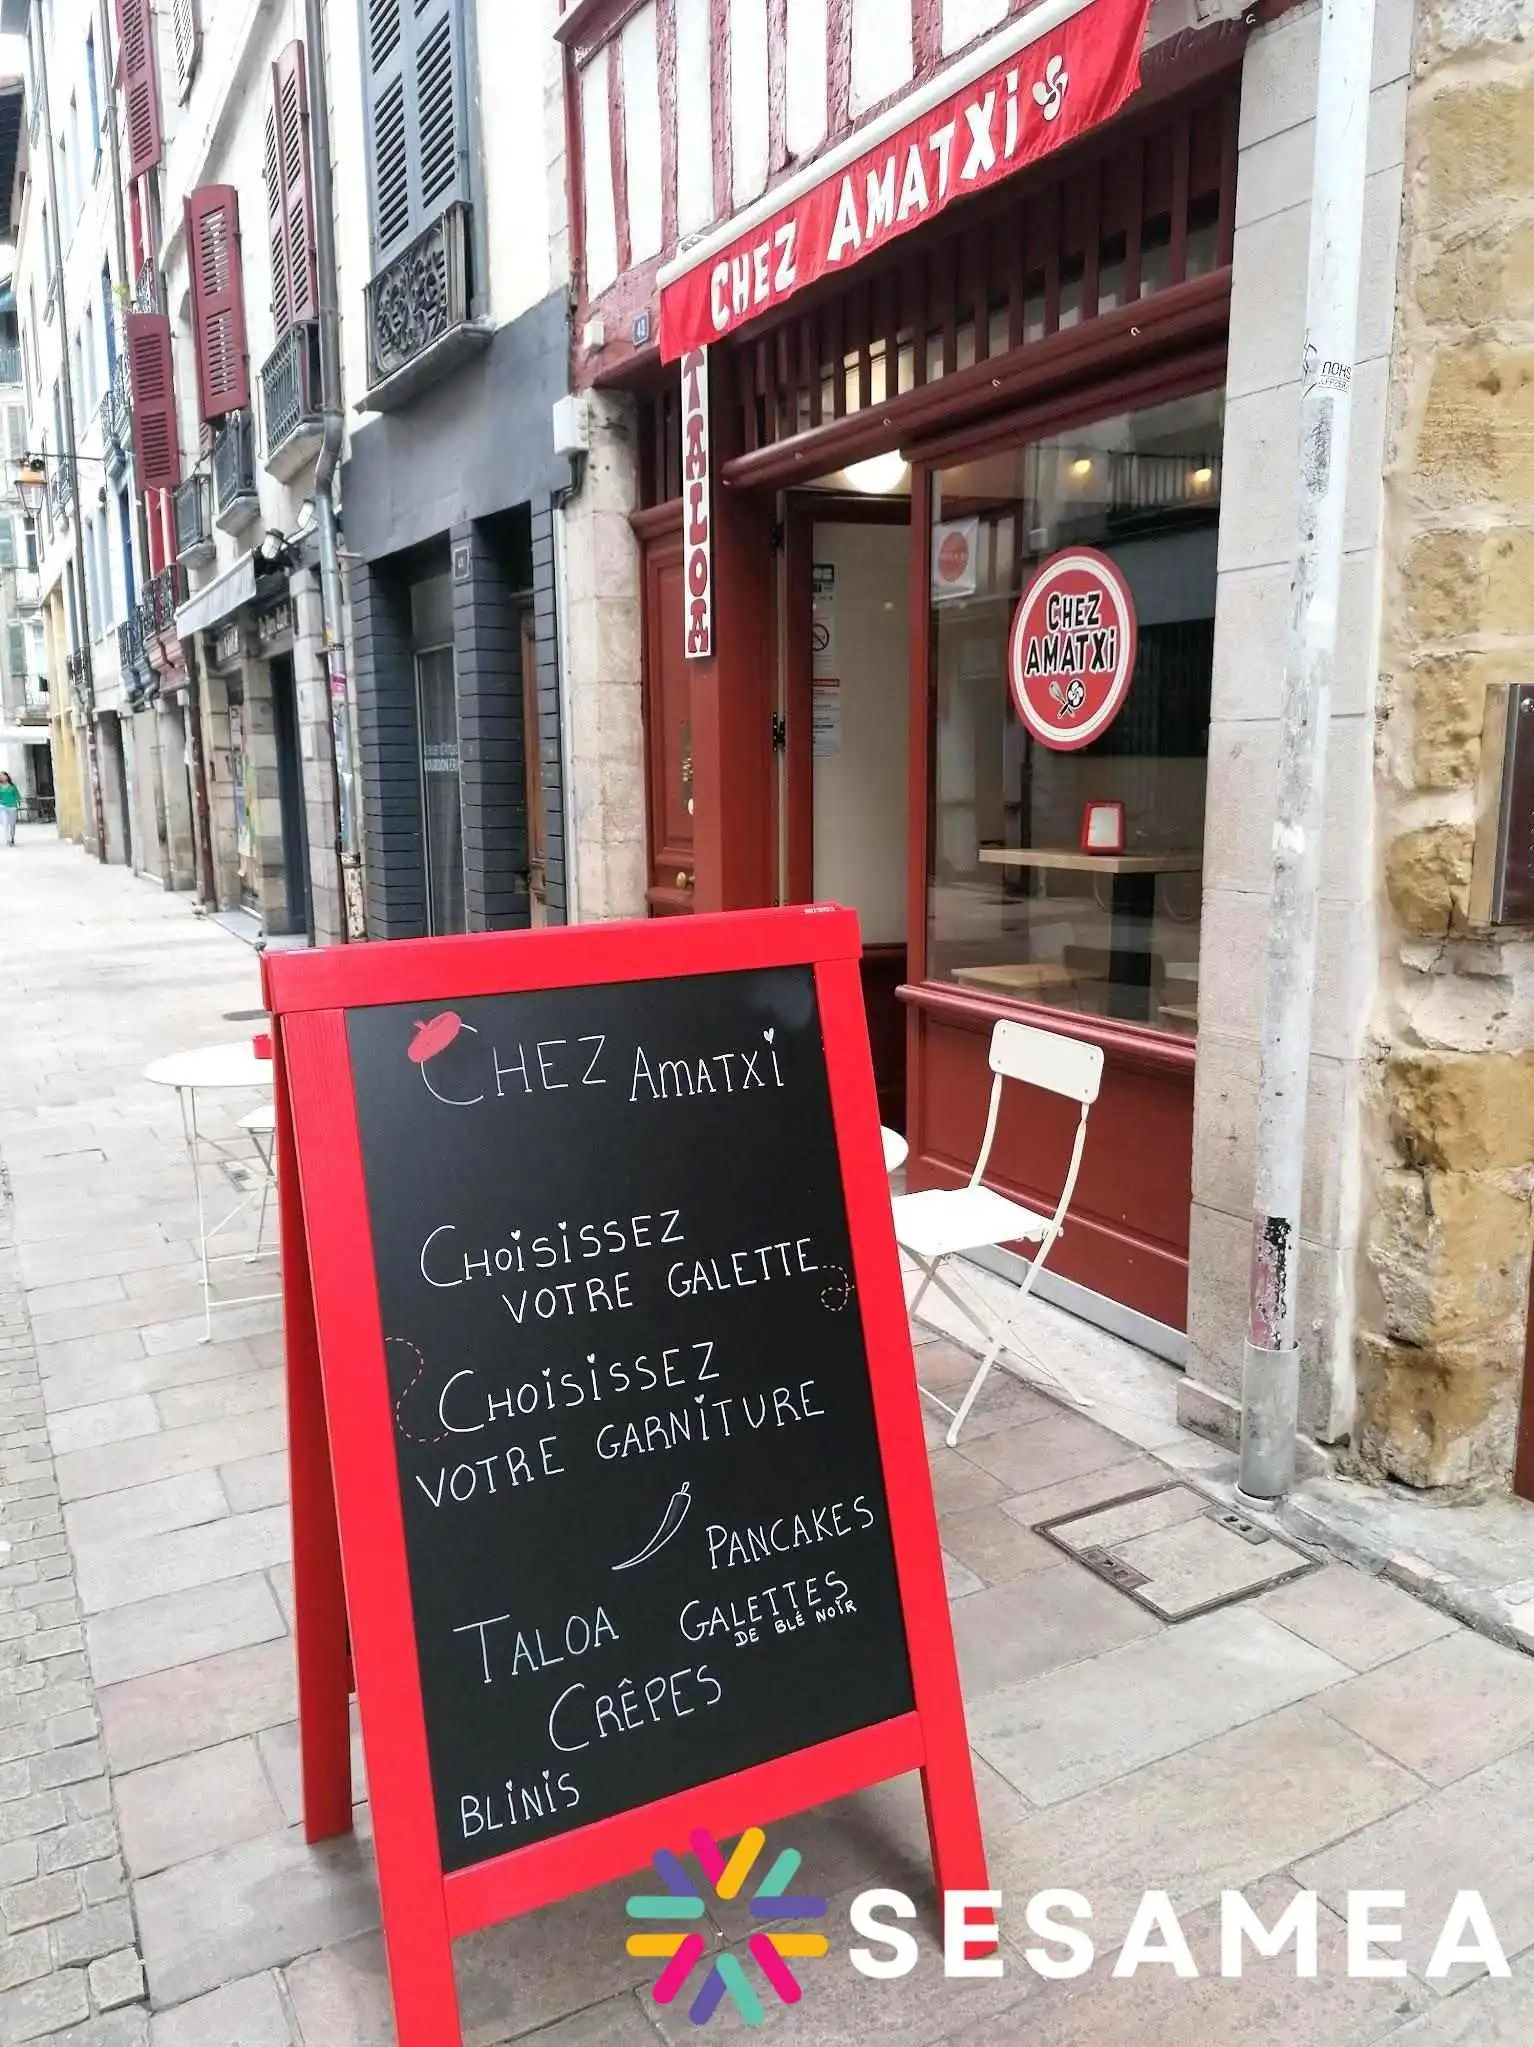 CHEZ AMATXi
TALOA
CHEZ
AMATXi
CHEZ AMATXi
CHOISISSEZ
VOTRE GALETTE
CHOISISSEZ
VOTRE GARNITURE
PANCAKES
TALOA
GALETTES
DE BLÉ NOIR
CRÊPES
BLINIS
SESAMEA